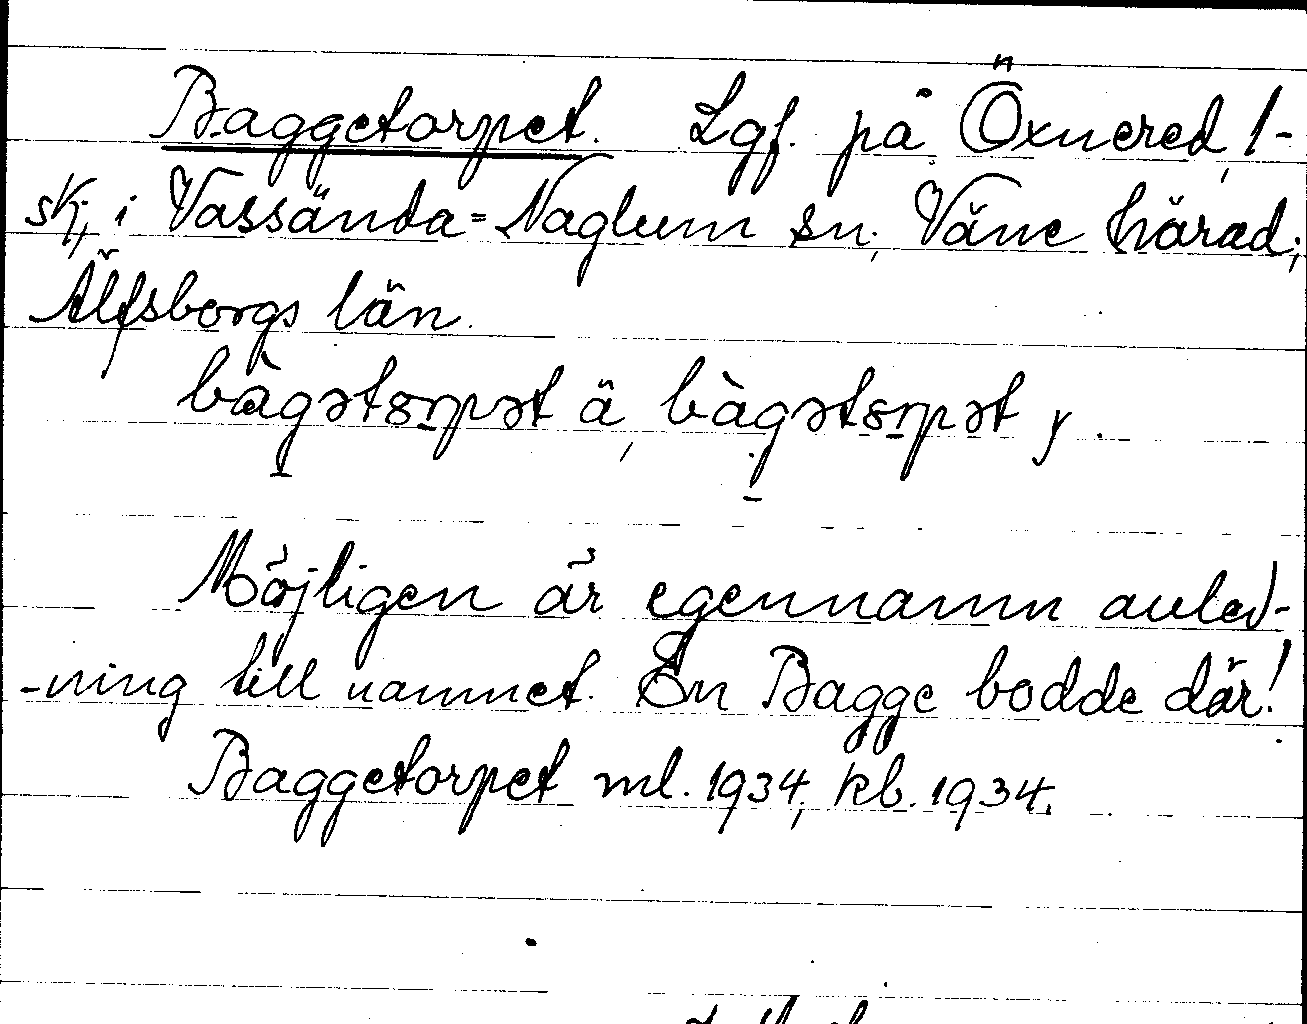 Baggetorpet. Lgf. på Öxnered, 1-
sk, i Vassända-Naglum sn, Väne härad,
Älfsborgs län.
bàgətɷrpət ä, bàgətɷrpət y.
Möjligen är egennamn anled-
-ning till namnet. En Bagge bodde där!
Baggetorpet ml. 1934, kb. 1934.